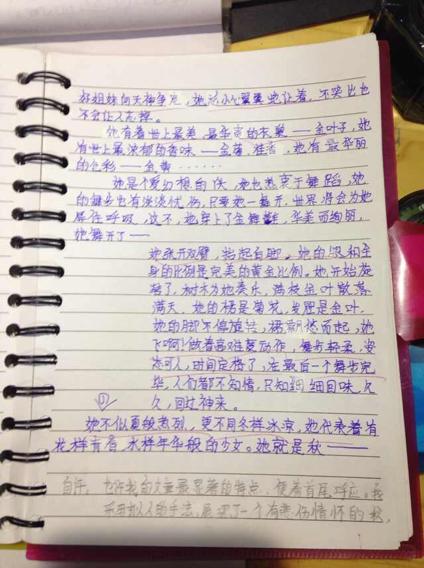 好姐妹向天神争宠，她总小心翼翼地让着，不突出也
不会让人忘掉。
她有着世上最美、最华贵的衣裳——金叶子，她
有世上最浓郁的香味——金菊，桂香，她有最华丽
的色彩——金黄……
她是个爱幻想的 ，她也热衷于舞蹈，她
的舞步也有淡淡忧伤，只要她一舞开，世界将会为她
屏住呼吸，这不，她穿上了金舞鞋，华美而绚丽，
她舞开了——
她张开双臂，抬起右脚，她的 和全
身的比例是完美的黄金比例，她开始旋
转了，树木为她奏乐，满枝金叶散落
满天，她的裙是菊花，发思是金叶，
她的脚不停旋转，裙 然而起，她
飞啊！做着高难度动作，舞步轻柔，姿
态可人，时间定格了，在最后一个舞步完
毕，人们都不知情，只知细细回味，久
久，回过神来。
她不似夏般热烈，更不同冬样冰凉，她代表着有
花样青春，水样年华般的少女。她就是秋——
自评：也许我的文章最显著的特点，便着首尾呼应。我
采用拟人的手法，展现了一个有悲伤情怀的秋，